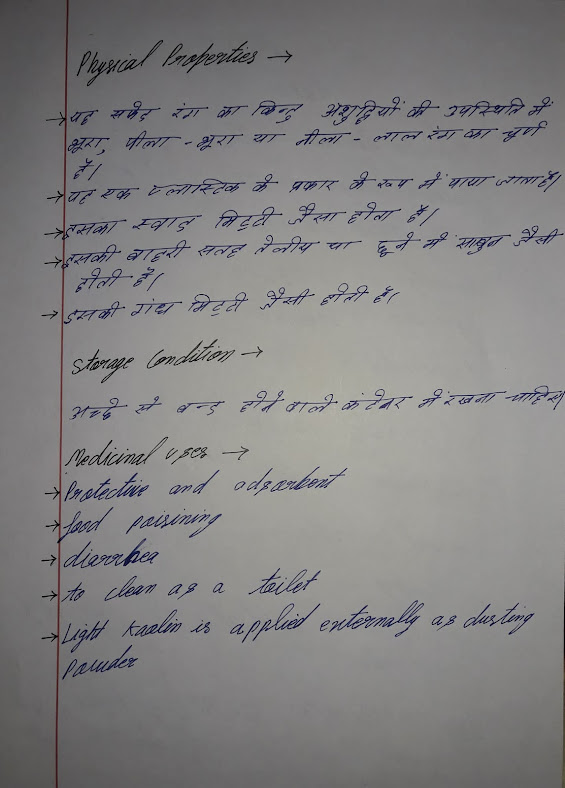 Physical Properties →
→ यह सफेद रंग का किन्तु अशुद्धियों की उपस्थिति में
भूरा, पीला - भूरा या नीला - लाल रंग का चूर्ण
है।
→ यह एक प्लास्टिक के प्रकार के रूप में पाया जाता है।
→ इसका स्वाद मिट्टी जैसा होता है।
→ इसकी बाहरी सतह तेलीय या छूने में साबुन जैसी
होती है।
→ इसकी गंध मिट्टी जैसी होती है।
Storage Condition →
अच्छे से बन्द होने वाले कंटेनर में रखना चाहिए।
Medicinal uses →
→ Protective and adsarbent
→ food poisining
→ diarrhea
→ to clean as a toilet
→ Light Kaolin is applied externally as dusting
Pawder